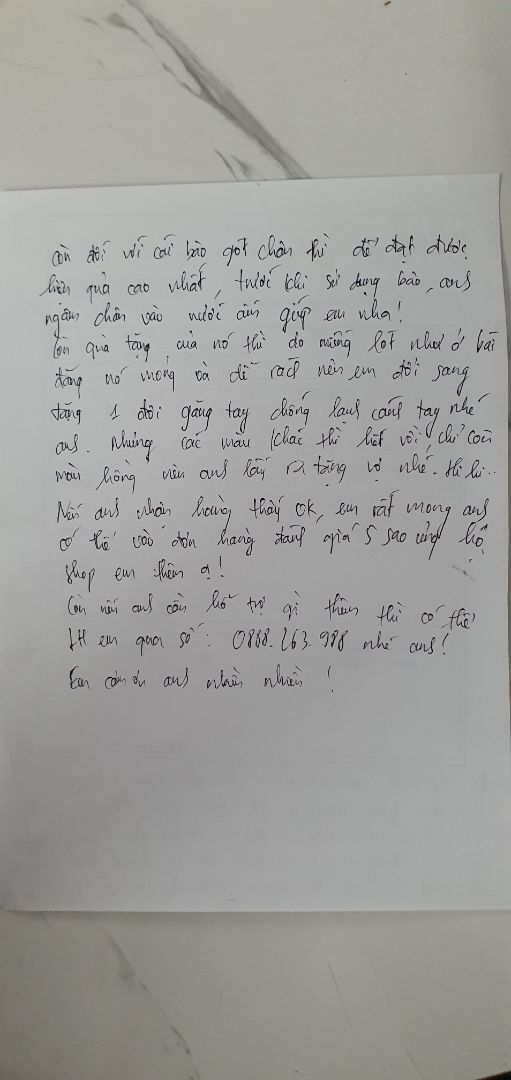 còn đối với cái bào gót chân thì để đạt được
hiệu quả cao nhất, trước khi sử dụng bào, anh
ngâm chân vào nước ấm giúp em nha!
Còn quà tặng của nó thì do miếng lót như ở bài
đăng nó mỏng và dễ rách nên em đổi sang
tặng 1 đôi găng tay chống lạnh tay nhé
anh. Nhưng các màu khác thì hết rồi, chỉ còn
màu hồng nên anh lấy ra tặng vợ nhé. Hi hi..
Nếu anh nhận hàng thấy ok, em rất mong anh
có thể vào đơn hàng đánh giá 5 sao ủng hộ
shop em thêm ạ!
Còn nếu anh cần hỗ trợ gì thêm thì có thể
LH em qua số: 0888.263.988 nhé anh!
Em cảm ơn anh nhiều nhiều!